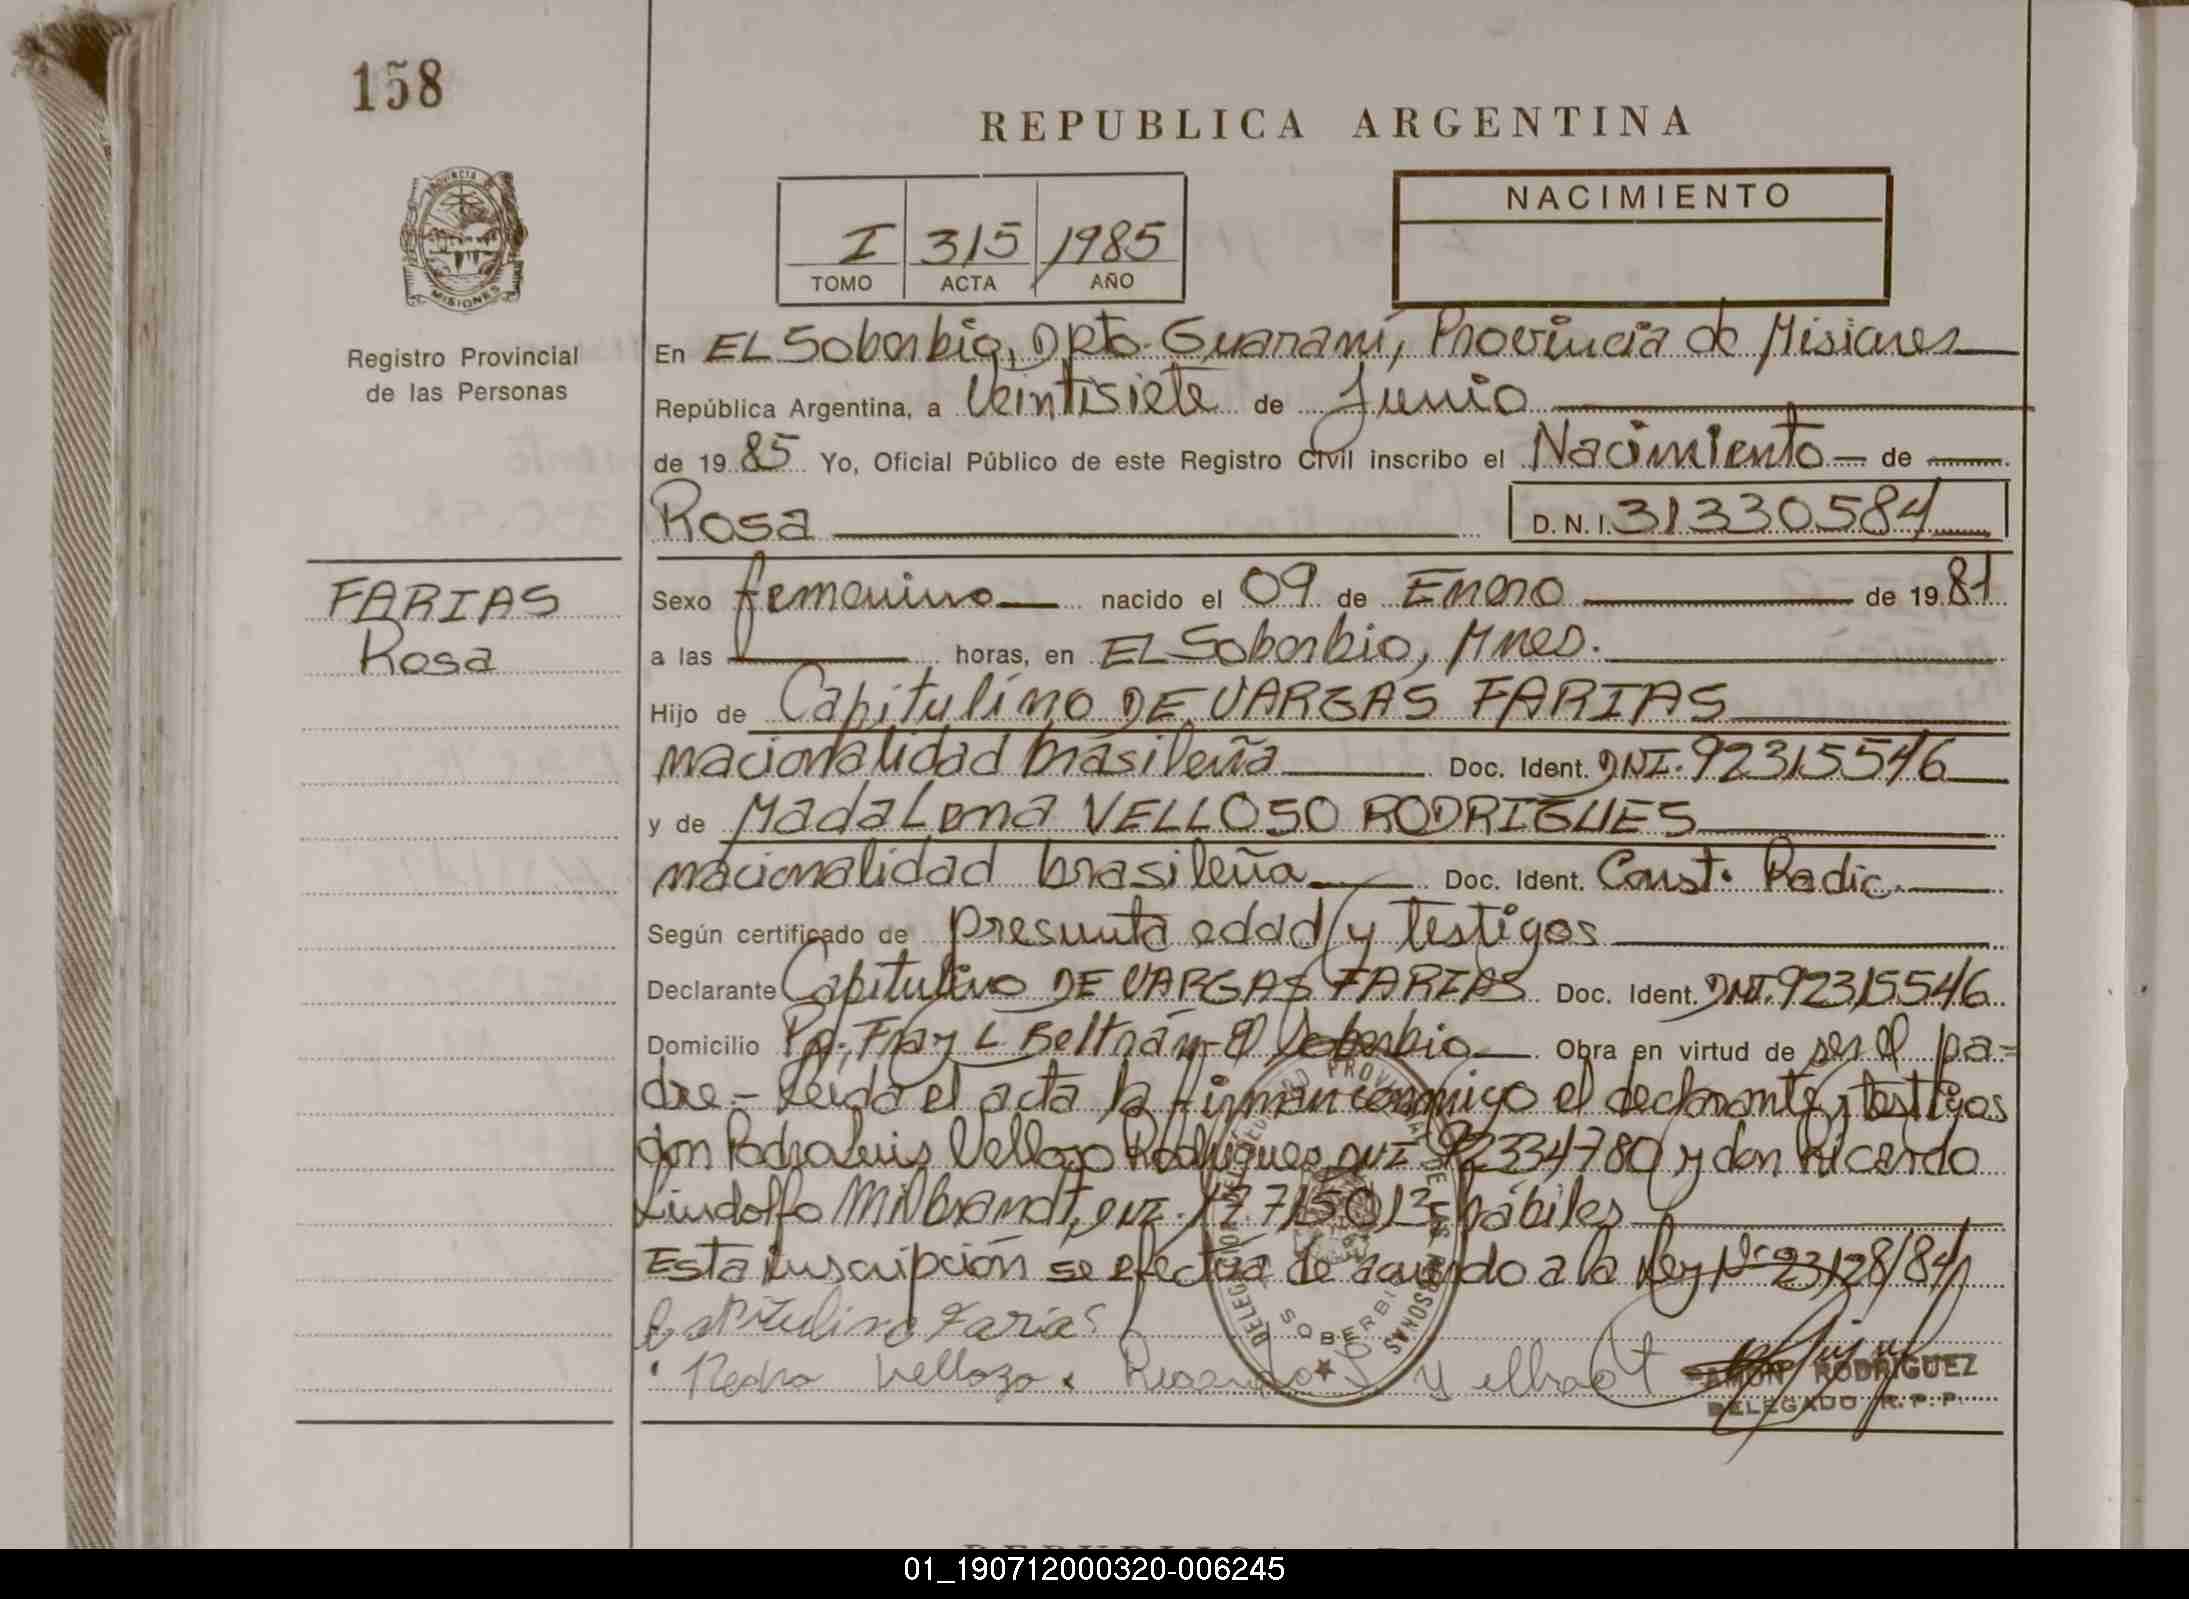 158
REPUBLICA ARGENTINA
PROVINCIA DE
MISIONES
Registro Provincial
de las Personas
I 315 1985
TOMO ACTA AÑO
NACIMIENTO
En EL Soberbio, Dpto. Guaraní, Provincia de Misiones
República Argentina, a Veintisiete de Junio
de 19 85 Yo, Oficial Público de este Registro Civil inscribo el Nacimiento de
Rosa D. N. I. 31330584
FARIAS
Rosa
Sexo femenino nacido el 09 de Enero de 19 81
a las horas, en EL Soberbio, Mnes.
Hijo de Capitulino DE VARGAS FARIAS
nacionalidad brasileña Doc. Ident. DNI. 92315546
y de Madalena VELLOSO RODRIGUES
nacionalidad brasileña Doc. Ident. Const. Radic.
Según certificado de presunta edad y testigos
Declarante Capitulino DE VARGAS FARIAS Doc. Ident. DNI. 92315546
Domicilio Pje. Fray L Beltrán-El Soberbio Obra en virtud de ser el pa=
dre.- Leida el acta la firman conmigo el declarante y testigos
don Pedro Luis Vellozo Rodrigues DNI 92334780 y don Ricardo
Lindolfo Milbrandt, DNI. 17715013 hábiles
Esta inscripción se efectúa de acuerdo a la Ley Nº 23128/84
Capitulino Farias
Pedro Vellozo Ricardo
DELEGACION SOBERBIO
RAMON RODRIGUEZ
DELEGADO R. P. P.
01_190712000320-006245